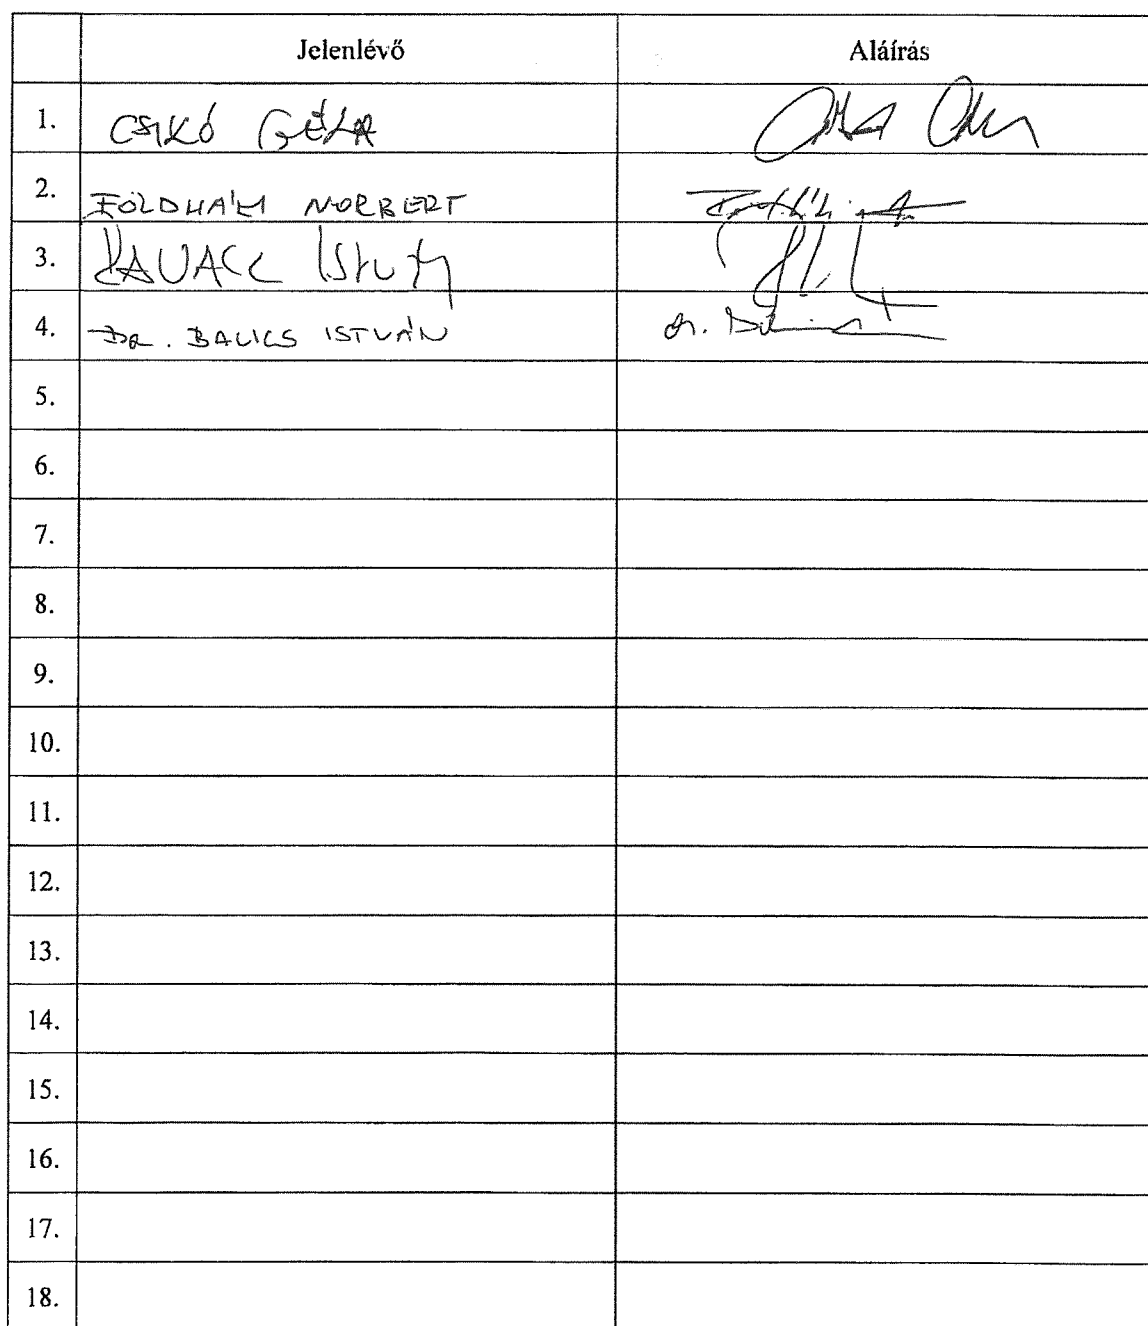 Jelenlévő Aláírás
1. CSIKÓ GÉLA
2. FÖLDHÁZI NORBERT
3.
4. DR. BALICS ISTVÁN dr.
5.
6.
7.
8.
9.
10.
11.
12.
13.
14.
15.
16.
17.
18.